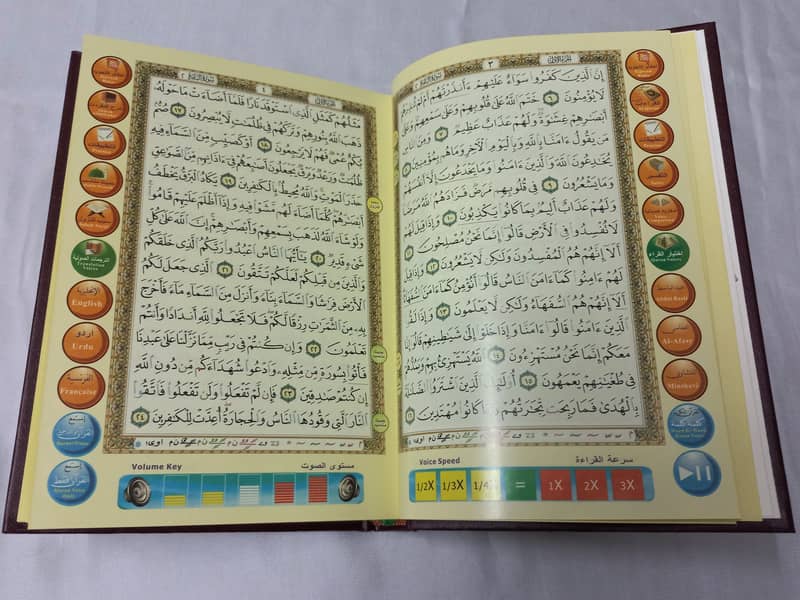 الجزء الأول
٣
سورة البقرة ٢
إِنَّ ٱلَّذِينَ كَفَرُوا۟ سَوَآءٌ عَلَيْهِمْ ءَأَنذَرْتَهُمْ أَمْ لَمْ تُنذِرْهُمْ
لَا يُؤْمِنُونَ ٦ خَتَمَ ٱللَّهُ عَلَىٰ قُلُوبِهِمْ وَعَلَىٰ سَمْعِهِمْ وَعَلَىٰٓ
أَبْصَـٰرِهِمْ غِشَـٰوَةٌ وَلَهُمْ عَذَابٌ عَظِيمٌ ٧ وَمِنَ ٱلنَّاسِ
مَن يَقُولُ ءَامَنَّا بِٱللَّهِ وَبِٱلْيَوْمِ ٱلْـَٔاخِرِ وَمَا هُم بِمُؤْمِنِينَ ٨
يُخَـٰدِعُونَ ٱللَّهَ وَٱلَّذِينَ ءَامَنُوا۟ وَمَا يَخْدَعُونَ إِلَّآ أَنفُسَهُمْ
وَمَا يَشْعُرُونَ ٩ فِى قُلُوبِهِم مَّرَضٌ فَزَادَهُمُ ٱللَّهُ مَرَضًا
وَلَهُمْ عَذَابٌ أَلِيمٌۢ بِمَا كَانُوا۟ يَكْذِبُونَ ١٠ وَإِذَا قِيلَ لَهُمْ
لَا تُفْسِدُوا۟ فِى ٱلْأَرْضِ قَالُوٓا۟ إِنَّمَا نَحْنُ مُصْلِحُونَ ١١
أَلَآ إِنَّهُمْ هُمُ ٱلْمُفْسِدُونَ وَلَـٰكِن لَّا يَشْعُرُونَ ١٢ وَإِذَا قِيلَ
لَهُمْ ءَامِنُوا۟ كَمَآ ءَامَنَ ٱلنَّاسُ قَالُوٓا۟ أَنُؤْمِنُ كَمَآ ءَامَنَ ٱلسُّفَهَآءُ
أَلَآ إِنَّهُمْ هُمُ ٱلسُّفَهَآءُ وَلَـٰكِن لَّا يَعْلَمُونَ ١٣ وَإِذَا لَقُوا۟
ٱلَّذِينَ ءَامَنُوا۟ قَالُوٓا۟ ءَامَنَّا وَإِذَا خَلَوْا۟ إِلَىٰ شَيَـٰطِينِهِمْ قَالُوٓا۟ إِنَّا
مَعَكُمْ إِنَّمَا نَحْنُ مُسْتَهْزِءُونَ ١٤ ٱللَّهُ يَسْتَهْزِئُ بِهِمْ وَيَمُدُّهُمْ
فِى طُغْيَـٰنِهِمْ يَعْمَهُونَ ١٥ أُو۟لَـٰٓئِكَ ٱلَّذِينَ ٱشْتَرَوُا۟ ٱلضَّلَـٰلَةَ
بِٱلْهُدَىٰ فَمَا رَبِحَت تِّجَـٰرَتُهُمْ وَمَا كَانُوا۟ مُهْتَدِينَ ١٦
التفسير
اختيار القراء
Al-Afasy
Minshawi
Voice Speed
سرعة القراءة
1/2X 1/3X 1/4X = 1X 2X 3X
الجزء الأول
٤
سورة البقرة ٢
مَثَلُهُمْ كَمَثَلِ ٱلَّذِى ٱسْتَوْقَدَ نَارًا فَلَمَّآ أَضَآءَتْ مَا حَوْلَهُۥ
ذَهَبَ ٱللَّهُ بِنُورِهِمْ وَتَرَكَهُمْ فِى ظُلُمَـٰتٍ لَّا يُبْصِرُونَ ١٧ صُمٌّۢ
بُكْمٌ عُمْىٌ فَهُمْ لَا يَرْجِعُونَ ١٨ أَوْ كَصَيِّبٍ مِّنَ ٱلسَّمَآءِ فِيهِ
ظُلُمَـٰتٌ وَرَعْدٌ وَبَرْقٌ يَجْعَلُونَ أَصَـٰبِعَهُمْ فِىٓ ءَاذَانِهِم مِّنَ ٱلصَّوَٰعِقِ
حَذَرَ ٱلْمَوْتِ وَٱللَّهُ مُحِيطٌۢ بِٱلْكَـٰفِرِينَ ١٩ يَكَادُ ٱلْبَرْقُ يَخْطَفُ
أَبْصَـٰرَهُمْ كُلَّمَآ أَضَآءَ لَهُم مَّشَوْا۟ فِيهِ وَإِذَآ أَظْلَمَ عَلَيْهِمْ قَامُوا۟
وَلَوْ شَآءَ ٱللَّهُ لَذَهَبَ بِسَمْعِهِمْ وَأَبْصَـٰرِهِمْ إِنَّ ٱللَّهَ عَلَىٰ كُلِّ
شَىْءٍ قَدِيرٌ ٢٠ يَـٰٓأَيُّهَا ٱلنَّاسُ ٱعْبُدُوا۟ رَبَّكُمُ ٱلَّذِى خَلَقَكُمْ
وَٱلَّذِينَ مِن قَبْلِكُمْ لَعَلَّكُمْ تَتَّقُونَ ٢١ ٱلَّذِى جَعَلَ لَكُمُ
ٱلْأَرْضَ فِرَٰشًا وَٱلسَّمَآءَ بِنَآءً وَأَنزَلَ مِنَ ٱلسَّمَآءِ مَآءً فَأَخْرَجَ
بِهِۦ مِنَ ٱلثَّمَرَٰتِ رِزْقًا لَّكُمْ فَلَا تَجْعَلُوا۟ لِلَّهِ أَندَادًا وَأَنتُمْ
تَعْلَمُونَ ٢٢ وَإِن كُنتُمْ فِى رَيْبٍ مِّمَّا نَزَّلْنَا عَلَىٰ عَبْدِنَا
فَأْتُوا۟ بِسُورَةٍ مِّن مِّثْلِهِۦ وَٱدْعُوا۟ شُهَدَآءَكُم مِّن دُونِ ٱللَّهِ
إِن كُنتُمْ صَـٰدِقِينَ ٢٣ فَإِن لَّمْ تَفْعَلُوا۟ وَلَن تَفْعَلُوا۟ فَٱتَّقُوا۟
ٱلنَّارَ ٱلَّتِى وَقُودُهَا ٱلنَّاسُ وَٱلْحِجَارَةُ أُعِدَّتْ لِلْكَـٰفِرِينَ ٢٤
الترجمات الصوتية
Translation Voices
الإنجليزية
English
اردو
Urdu
الفرنسية
Française
Volume Key
مستوى الصوت